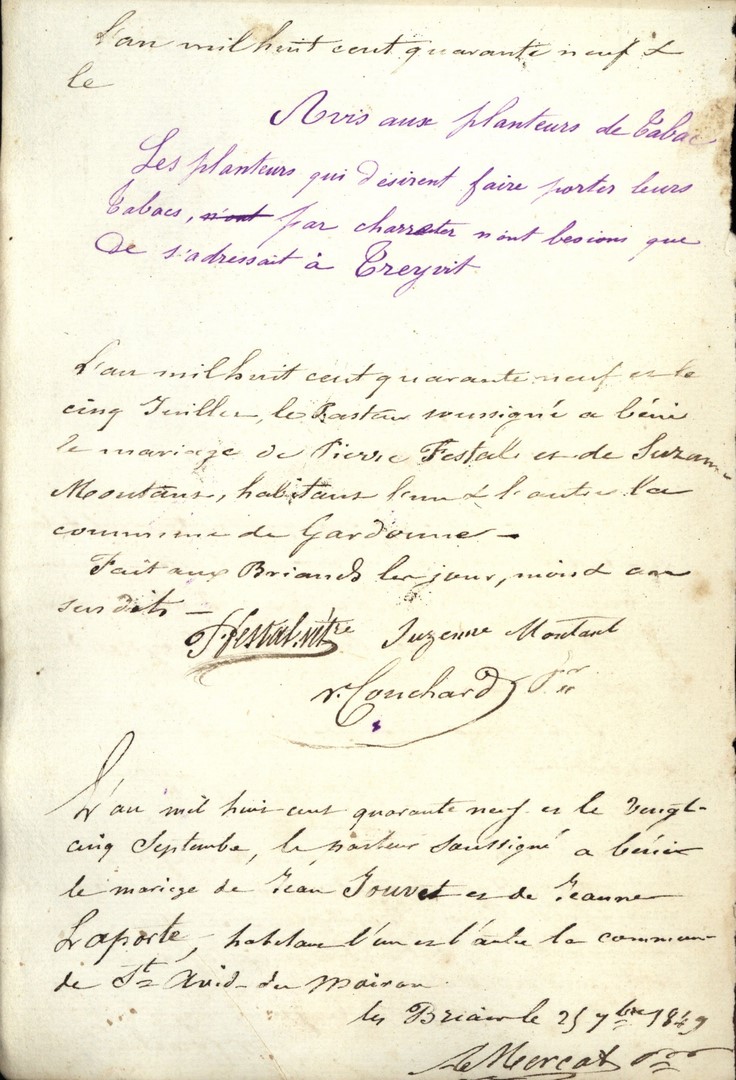 L'an mil huit cent quarante neuf &
le
Avis aux planteurs de Tabac
Les planteurs qui désirent faire porter leurs
Tabacs, n'ont par charreter n'ont besions que
de s'adressait à Treyvit
L'an mil huit cent quarante neuf et le
cinq Juillet, le Pasteur soussigné a béni
le mariage de Pierre Festal et de Suzanne
Moutans, habitans l'un & l'autre la
commune de Gardonne –
Fait aux Briands les jour, mois & an
susdits –
P. festal Suzenne Montant
r. Couchard psr
L'an mil huit cent quarante neuf et le vingt-
cinq Septembre, le pasteur soussigné a béni
le mariage de Jean Jouvet et de Jeanne
Laporte, habitans l'un et l'autre la commune
de St Avid du Moiron
les Briands le 25 7bre 1849
Le Mercat psr